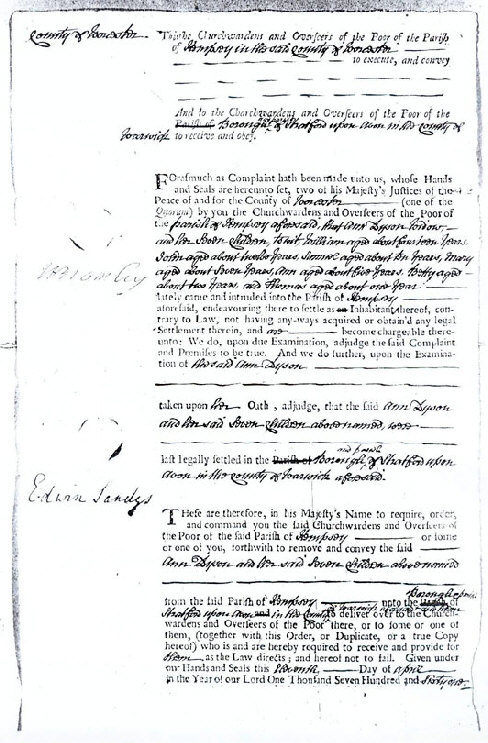 County of Worcester
To the Churchwardens and Overseers of the Poor of the Parish
of Kempsey in the said County of Worcester
to execute, and convey
And to the Churchwardens and Overseers of the Poor of the
Parish of Borough and parish of Stratford upon Avon in the County of
Warwick to receive and obey.
FOrasmuch as Complaint hath been made unto us, whose Hands
and Seals are hereunto set, two of his Majesty's Justices of the
Peace of and for the County of Worcester (one of the
Quorum) by you the Churchwardens and Overseers of the Poor of
the parish of Kempsey aforesaid, that Ann Dyson Widow
and her Seven Children, to wit William aged about fourteen Years
John aged about twelve Years, aged about ten Years, Mary
aged about Seven Years, Ann aged about five Years, Betty aged
about two Years and Thomas aged about one Year
lately came and intruded into the Parish of Kempsey
aforesaid, endeavouring there to settle as Inhabitants thereof, con-
trary to Law, not having any-ways acquired or obtain'd any legal
Settlement therein, and are become chargeable there-
unto: We do, upon due Examination, adjudge the said Complaint
and Premises to be true. And we do further, upon the Examina-
tion of the said Ann Dyson
taken upon her Oath, adjudge, that the said Ann Dyson
and her said Seven Children above named, were
last legally settled in the Parish of Borough and parish of Stratford upon
Avon in the County of Warwick aforesaid
Bromley
Edwin Sandys
THese are therefore, in his Majesty's Name to require, order,
and command you the said Churchwardens and Overseers of
the Poor of the said Parish of Kempsey or some
or one of you, forthwith to remove and convey the said
Ann Dyson and her said Seven Children above named
from the said Parish of Kempsey unto the Parish of Borough and parish of
Stratford upon Avon and in the County to deliver over to the Church-
wardens and Overseers of the Poor there, or to some or one of
them, (together with this Order, or Duplicate, or a true Copy
hereof) who is and are hereby required to receive and provide for
them as the Law directs; and hereof not to fail. Given under
our Hands and Seals this Eleventh Day of April
in the Year of our Lord One Thousand Seven Hundred and Sixty one